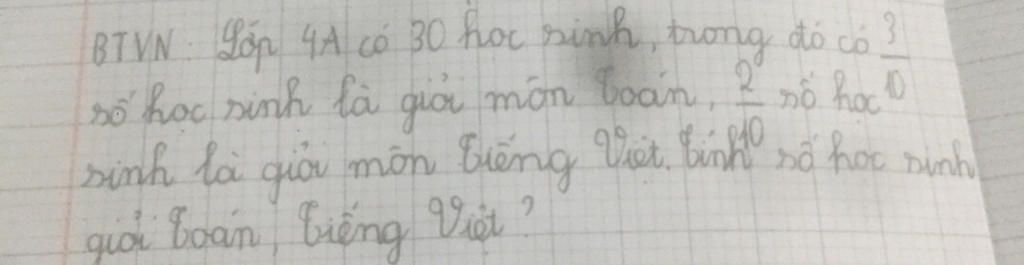 BTVN. Lớp 4A có 30 học sinh, trong đó có 3/10
số học sinh là giỏi môn Toán, 2/10 số học
sinh là giỏi môn Tiếng Việt. Tính số học sinh
giỏi Toán, Tiếng Việt?